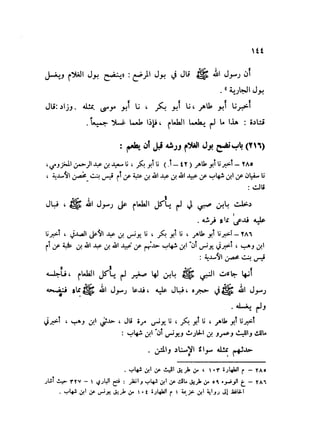 ١٤٤
أن رسول الله ﷺ قال في بول الرضيع : «ينضح بول الغلام ويغسل
بول الجارية» .
أخبرنا أبو طاهر ، نا أبو بكر ، نا أبو موسى بمثله . وزاد : قال
قتادة : هذا ما لم يطعما الطعام ، فإذا طعما غسلا جميعاً .
(٢١٦) باب نضح بول الغلام ورشه قبل أن يطعم :
٢٨٥ — أخبرنا أبو طاهر (٤٢ — أ) نا أبو بكر ، نا
نا سفيان عن ابن شهاب عن عبيد الله بن عبد الله بن عتبة عن أم قيس بنت محصن الأسدية ،
قالت :
دخلت بابن لي لم يأكل الطعام على رسول الله ﷺ ، فبال
عليه فدعا بماء فرشه .
٢٨٦ — أخبرنا أبو طاهر ، نا أبو بكر ، نا يونس بن عبد الأعلى الصدفي ، أخبرنا
ابن وهب ، أخبرني يونس أن ابن شهاب أخبره عن عبيد الله بن عبد الله بن عتبة عن أم
قيس بنت محصن :
أنها جاءت النبي ﷺ بابن لها صغير لم يأكل الطعام ، فأجلسه
رسول الله ﷺ في حجره ، فبال عليه ، فدعا رسول الله ﷺ بماء فنضحه
ولم يغسله .
أخبرنا أبو طاهر ، نا أبو بكر ، نا يونس مرة قال ، حدثنا ابن وهب ، أخبرني
مالك والليث وعمرو بن الحارث ويونس أن ابن شهاب :
حدثهم بمثله سواء الإسناد والمتن .
٢٨٥ — م الطهارة ١٠٣ ، من طريق الليث عن ابن شهاب .
٢٨٦ —